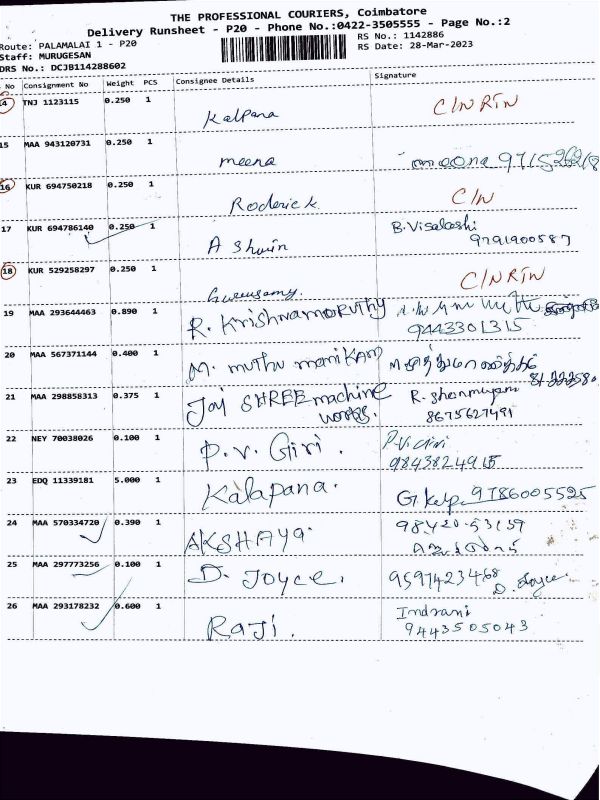 THE PROFESSIONAL COURIERS, Coimbatore
Delivery Runsheet - P20 - Phone No.:0422-3505555 - Page No.:2
Route: PALAMALAI 1 - P20
RS No.: 1142886
Staff: MURUGESAN
RS Date: 28-Mar-2023
DRS No.: DCJB114288602
No Consignment No Weight PCS Consignee Details Signature
14 TNJ 1123115 0.250 1 Kalpana C/N RTN
15 MAA 943120731 0.250 1 meena
16 KUR 694750218 0.250 1 Roderick C/N
17 KUR 694786140 0.250 1 Ashwin B. Visalakshi
9791900587
18 KUR 529258297 0.250 1 Gurusamy. C/N RTN
19 MAA 293644463 0.890 1 R. Krishnamoruthy
9443301315
20 MAA 567371144 0.400 1 M. muthu manikam
21 MAA 298858313 0.375 1 Jai SHREE machine works. R. Shanmugam
8675627491
22 NEY 70038026 0.100 1 P. V. Giri. P.V. Giri
9843824915
23 EDQ 11339181 5.000 1 Kalapana. 9786005525
24 MAA 570334720 0.390 1 AKSHAYA.
25 MAA 297773256 0.100 1 D. Joyce. 9597423468
D. Joyce
26 MAA 293178232 0.600 1 Raji. Indrani
9443505043